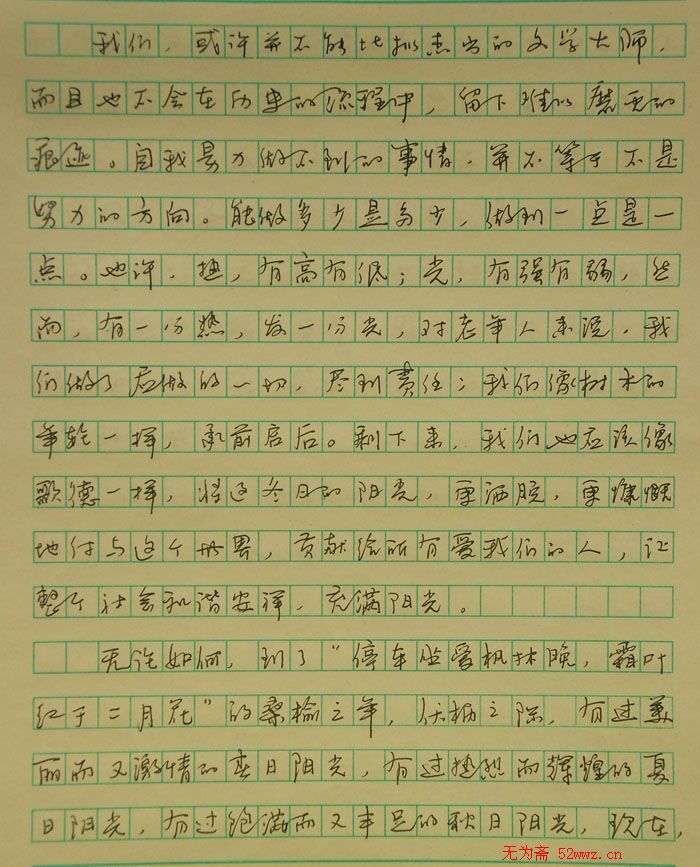 我们，或许并不能比拟杰出的文学大师，
而且也不会在历史的流程中，留下难以磨灭的
痕迹。自我努力做不到的事情，并不等于不是
努力的方向。能做多少是多少，做到一点是一
点。也许，热，有高有低；光，有强有弱，然
而，有一份热，发一份光，对老年人来说，我
们做了应做的一切，尽到责任；我们像树木的
年轮一样，承前启后。剩下来，我们也应该像
歌德一样，将这冬日的阳光，更洒脱，更慷慨
地付与这个世界，贡献给所有爱我们的人，让
整个社会和谐安详，充满阳光。
无论如何，到了“停车坐爱枫林晚，霜叶
红于二月花”的桑榆之年，伏枥之际，有过美
丽而又激情的春日阳光，有过热烈而辉煌的夏
日阳光，有过饱满而又丰足的秋日阳光，现在，
无为斋 52wwz.cn